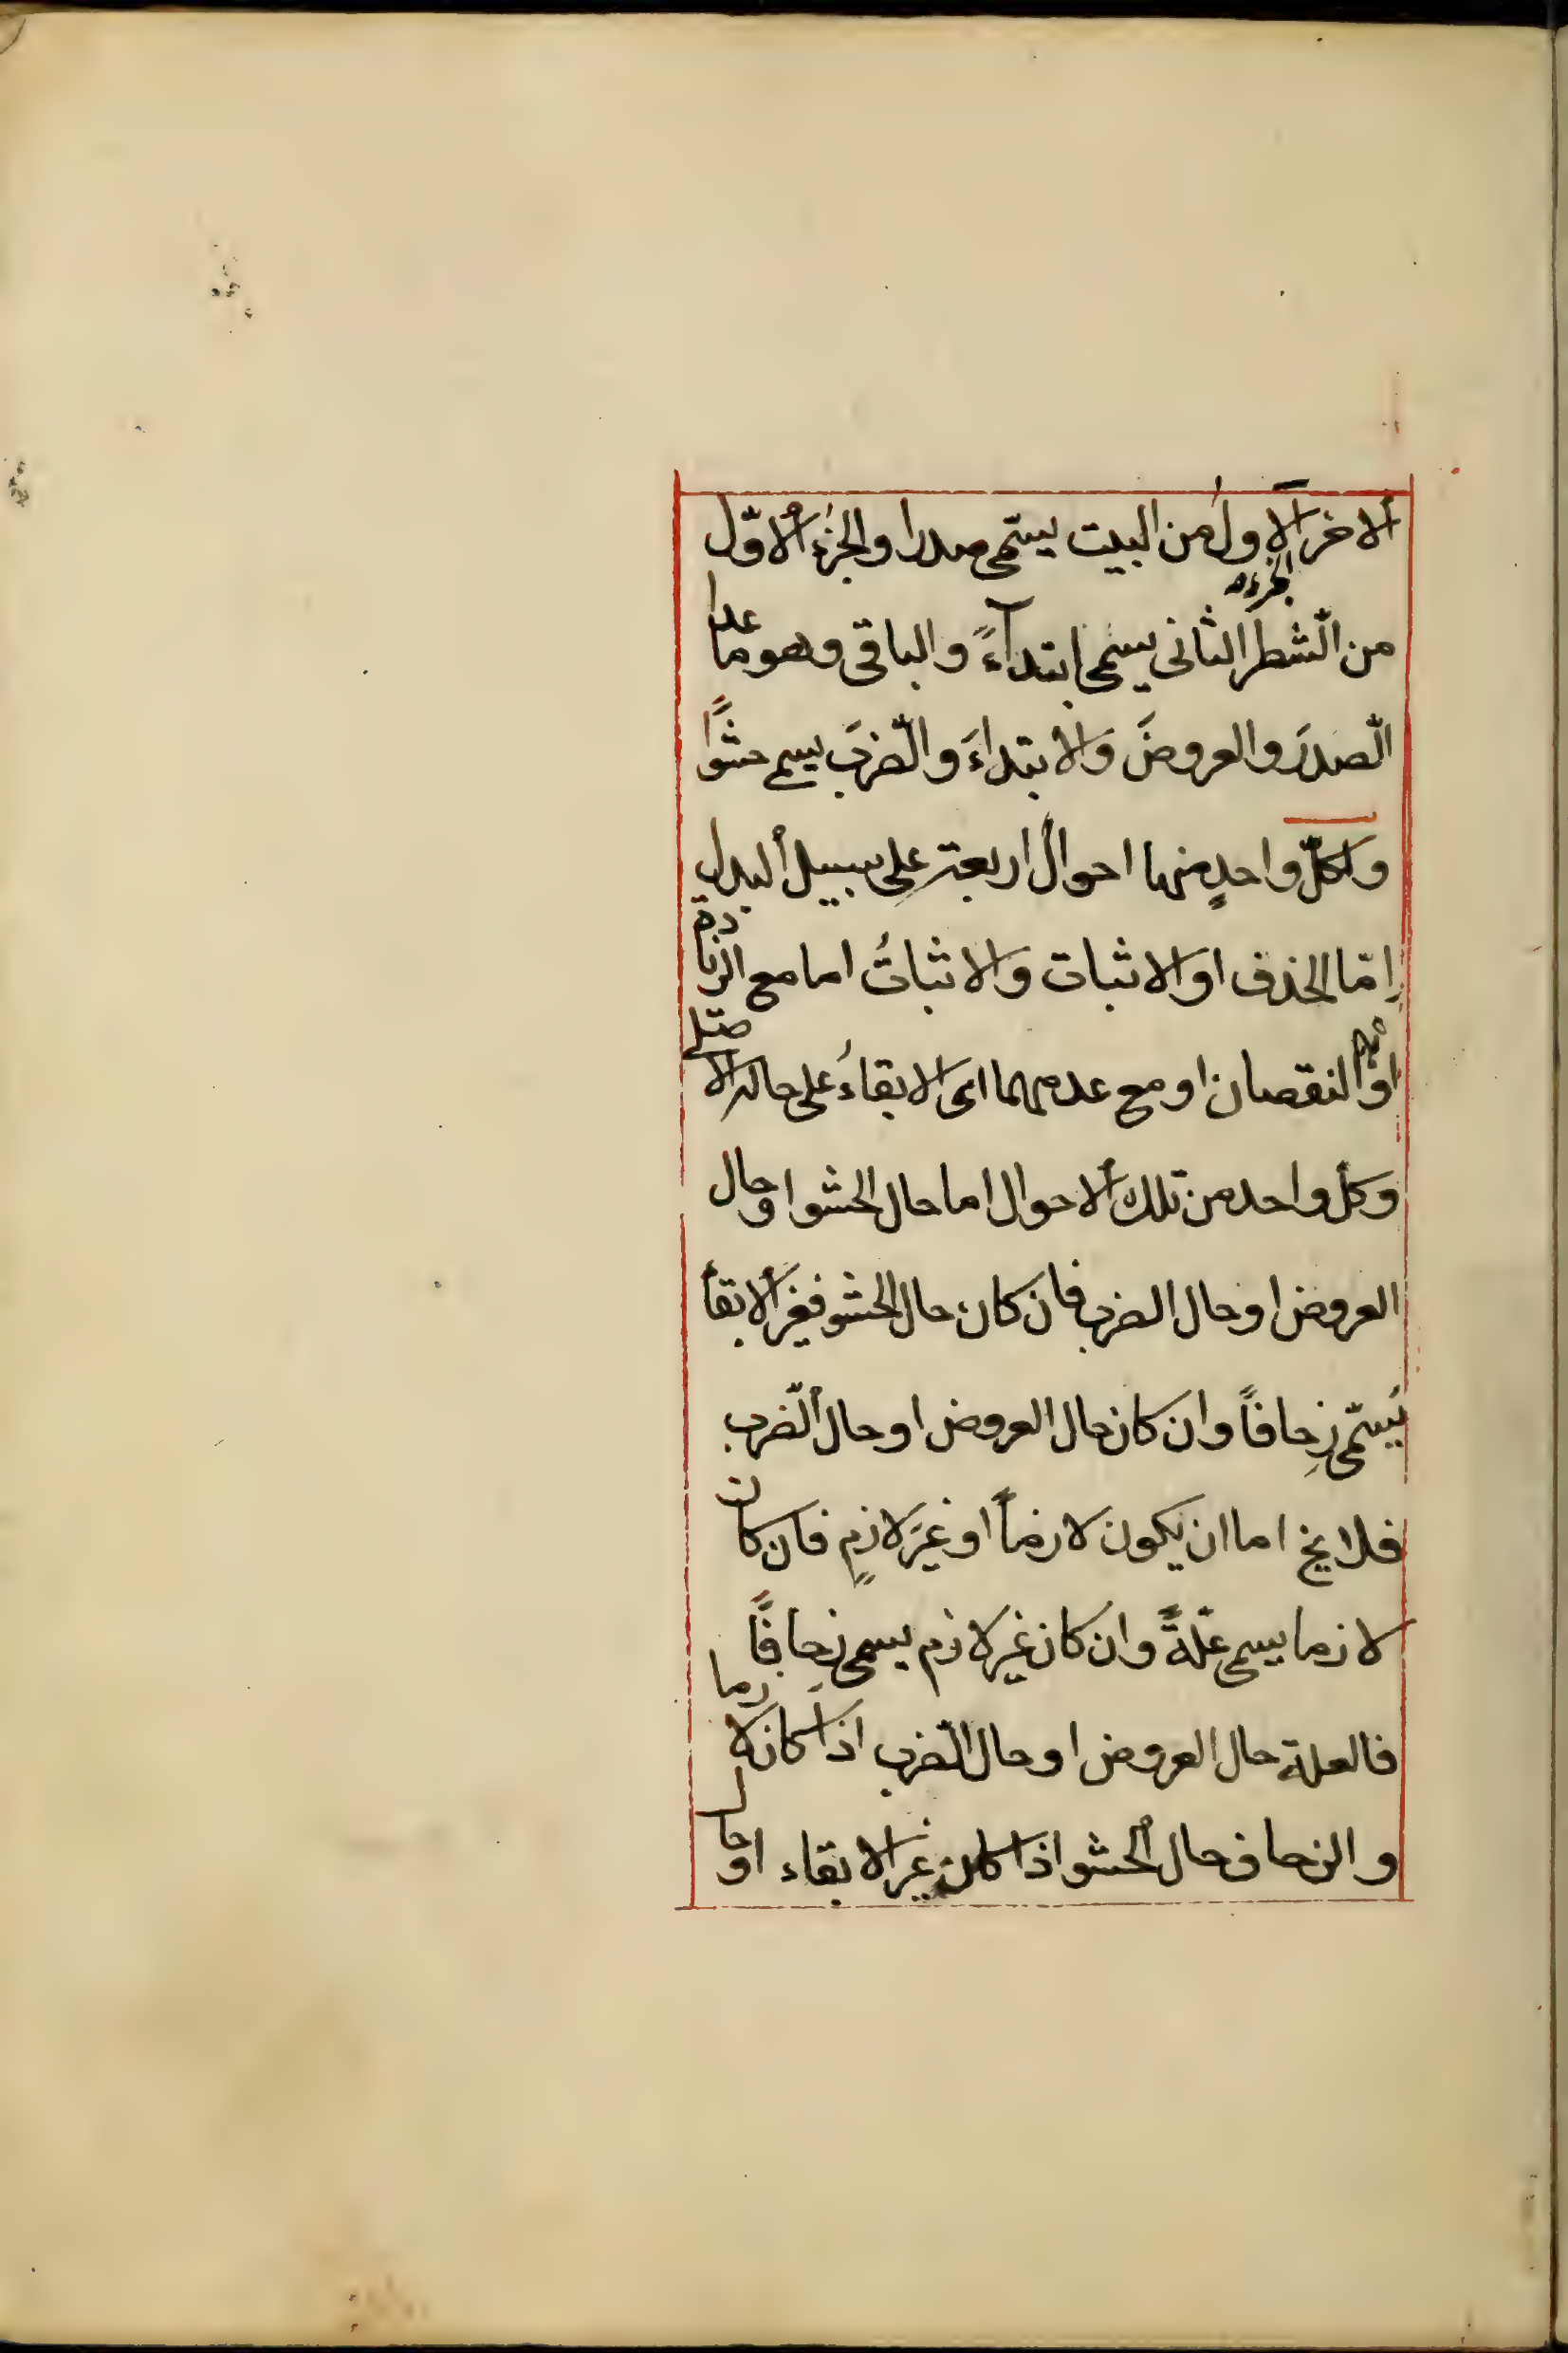 الاخر الاول من البيت يسمّى صدرا والجزء الاوّل
الجزء
من الشّطر الثانى يسمى ابتداءً والباقى وهو ما عدا
الصّدرَ والعروضَ والابتداءَ والضّربَ يسمى حشوًا
ولكلّ واحدٍ منها احوال اربعة على سبيل البدل
اِمّا الحذف او الاثبات والاثباتُ اما مع الزيادة
او مع النقصان او مع عدمهما اى الابقاءُ على حاله الاصلى
وكل واحد من تلك الاحوال اما حال الحشو او حال
العروض او حال الضرب فان كان حال الحشو فغير الابقاء
يُسمّى زِحافاً وان كان حال العروض او حال الضّرب
فلا يخ اما ان يكون لازماً او غيرَ لازمٍ فان كان
لازما يسمى علّةً وان كان غير لازم يسمى زِحافًا
فالعلة حال العروض او حال الضّرب اذا كان لازما
والزحاف حال الحشو اذا كان غير الابقاء او حال